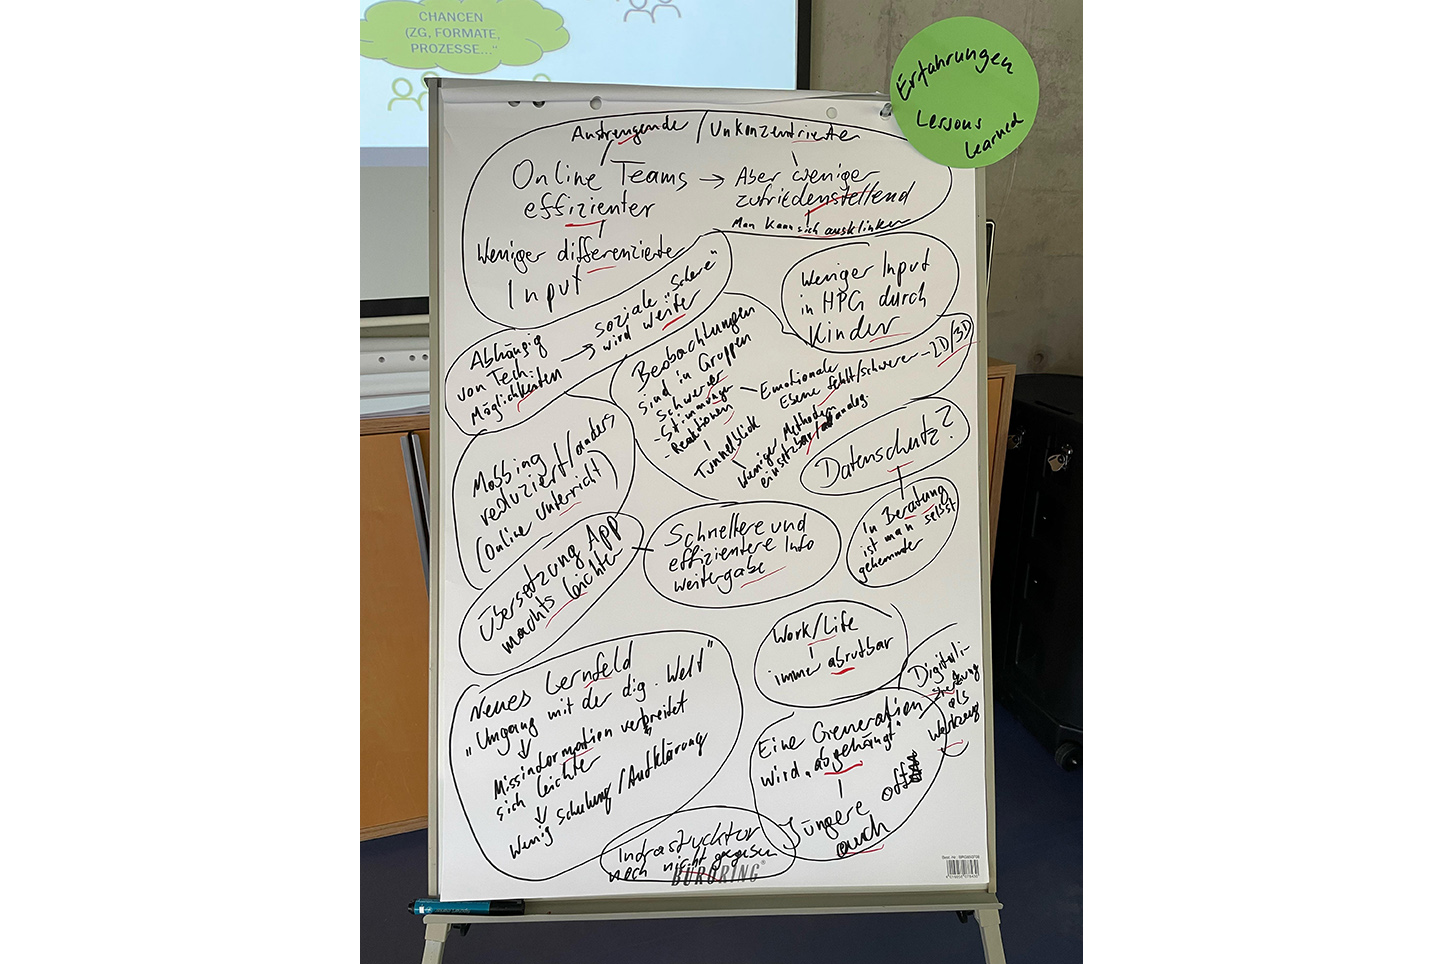 CHANCEN
(ZG, FORMATE,
PROZESSE..."
Erfahrungen
Lessons
learned
Anstrengende / Unkonzentrierte
Online Teams → Aber weniger
effizienter zufriedenstellend
Man kann sich ausklinken
Weniger differenzierte
Input
Abhängig
von Tech.
Möglichkeiten
→ soziale "Schere"
wird weiter
Weniger Input
in HPG durch
Kinder
Beobachtungen
sind in Gruppen
Schwerer
- Stimmungen
- Reaktionen
Tunnelblick
Emotionale
Ebene fehlt/schwerer - 2D/3D
Weniger Methoden
einsetzbar als analog
Mobbing
reduziert/anders
(Online Unterricht)
Datenschutz?
In Beratung
ist man selbst
gehemmter
Übersetzung App
machts leichter
Schnellere und
effizientere Info
weitergabe
Work/Life
immer abrufbar
Neues Lernfeld
"Umgang mit der dig. Welt"
Missinformation verbreitet
sich leichter
Wenig Schulung/Aufklärung
Digitali-
sierung
als
Werkzeug
Eine Generation
wird "abgehängt"
Jüngere oft
auch
Infrastruktur
noch nicht gegeben
BÜRORING®